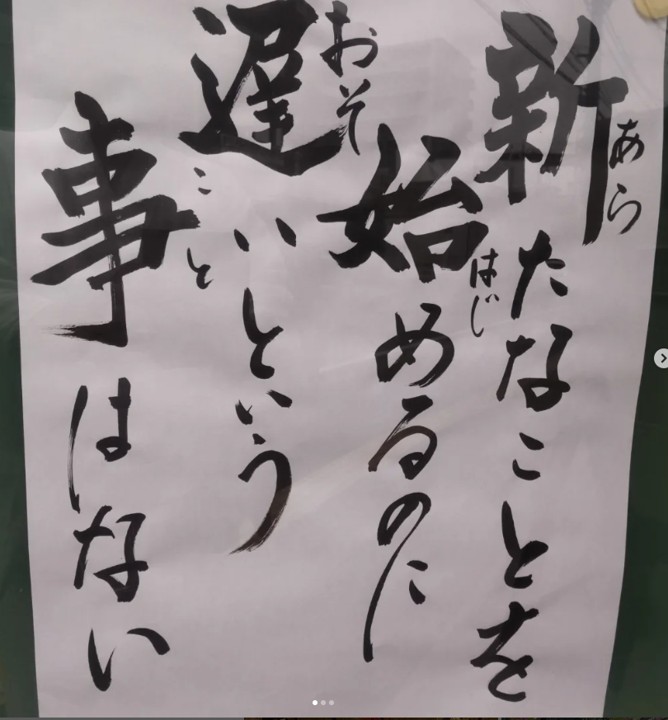 新たなことを
あら
始めるのに
はじ
遅いという
おそ
事はない
こと